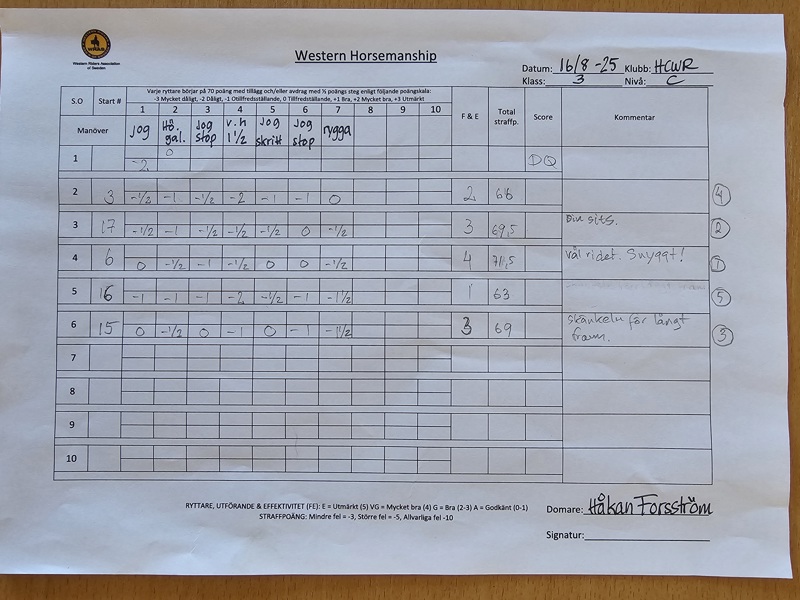 WRAS
Western Riders Association
of Sweden
Western Horsemanship
Datum: 16/8 -25 Klubb: HCWR
Klass: 3 Nivå: C
S.O Start # Varje ryttare börjar på 70 poäng med tillägg och/eller avdrag med ½ poängs steg enligt följande poängskala:
-3 Mycket dåligt, -2 Dåligt, -1 Otillfredsställande, 0 Tillfredställande, +1 Bra, +2 Mycket bra, +3 Utmärkt
1 2 3 4 5 6 7 8 9 10 F & E Total straffp. Score Kommentar
Manöver jog Hö. gal. jog stop v.h 1 1/2 jog skritt jog stop rygga
1 0 DQ
-2
2 3 -1/2 -1 -1/2 -2 -1 -1 0 2 66 4
3 17 -1/2 -1 -1/2 -1/2 -1/2 0 -1/2 3 69,5 sits. 2
4 6 0 -1/2 -1 -1/2 0 0 -1/2 4 71,5 väl ridet. Snyggt! 1
5 16 -1 -1 -1 -2 -1/2 -1 -1 1/2 1 63 5
6 15 0 -1/2 0 -1 0 -1 -1 1/2 3 69 skänkeln för långt 3
fram.
7
8
9
10
RYTTARE, UTFÖRANDE & EFFEKTIVITET (FE): E = Utmärkt (5) VG = Mycket bra (4) G = Bra (2-3) A = Godkänt (0-1)
STRAFFPOÄNG: Mindre fel = -3, Större fel = -5, Allvarliga fel -10
Domare: Håkan Forsström
Signatur: